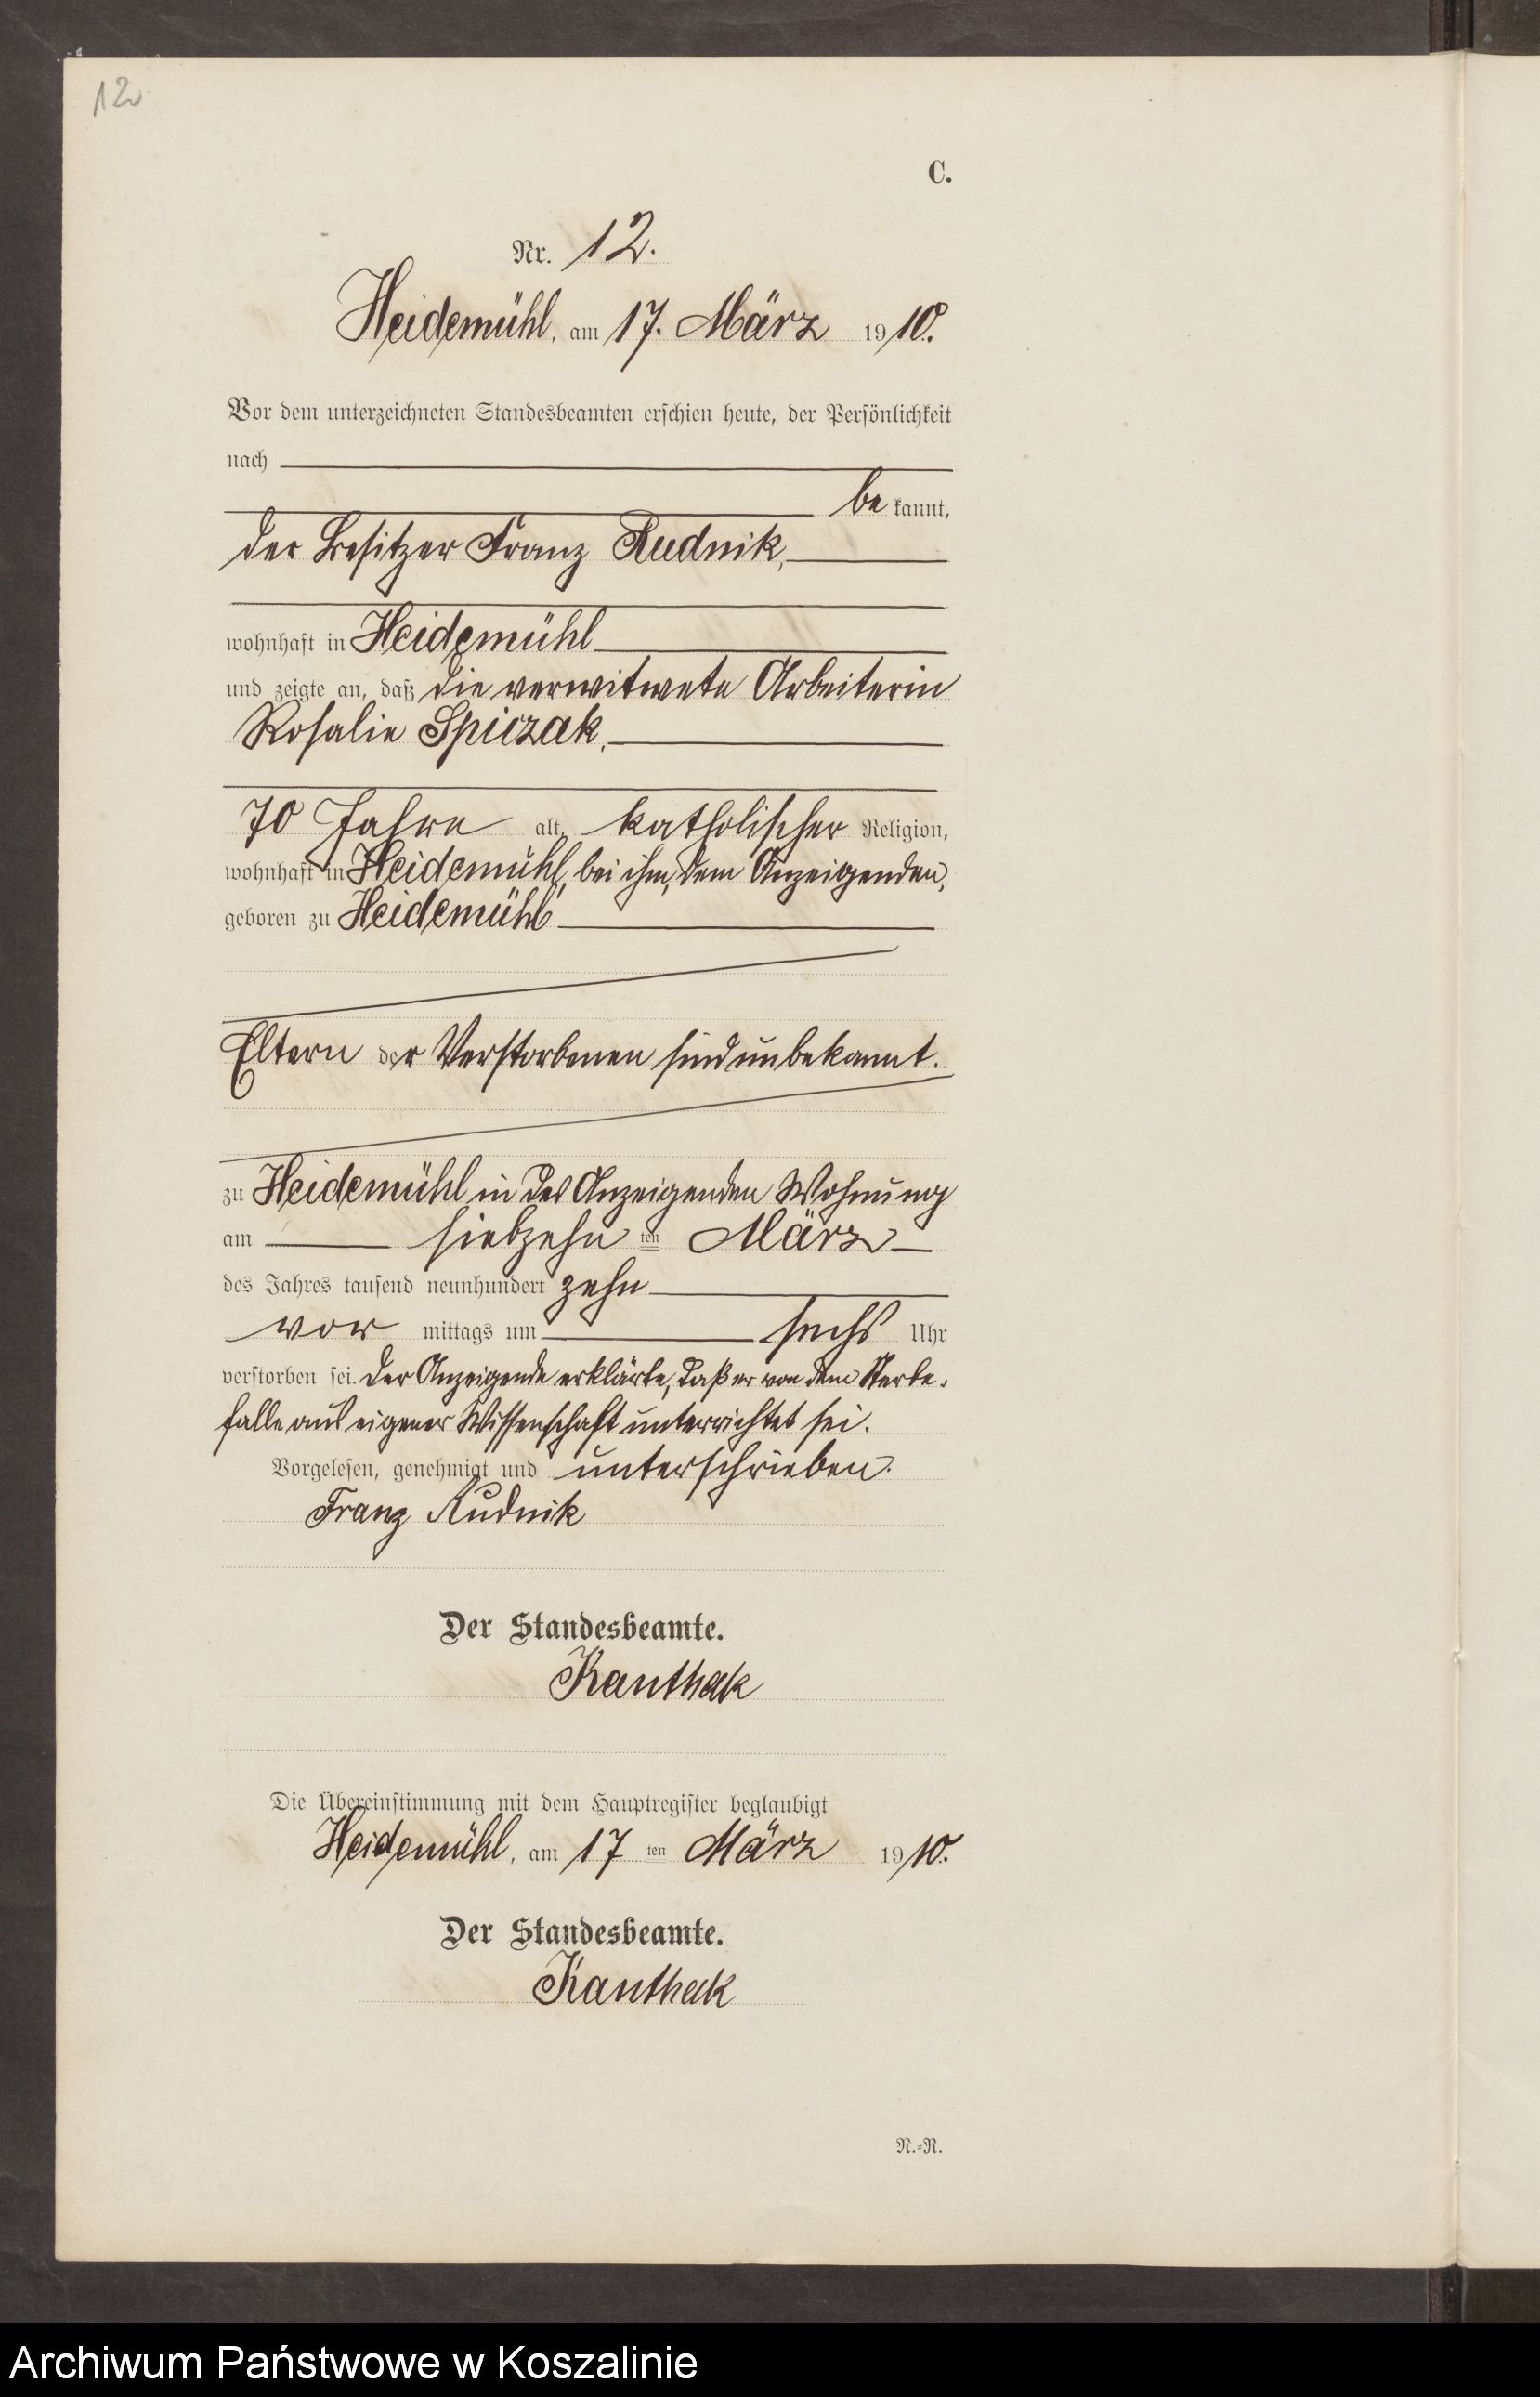 12
C.
Nr. 12.
Heidemühl, am 17. März 1910.
Vor dem unterzeichneten Standesbeamten erschien heute, der Persönlichkeit
nach
be kannt,
der Besitzer Franz Rudnik,
wohnhaft in Heidemühl
und zeigte an, daß die verwitwete Arbeiterin
Rosalie Spiczak,
70 Jahre alt, katholischer Religion,
wohnhaft in Heidemühl, bei ihm, dem Anzeigenden,
geboren zu Heidemühl
Eltern der Verstorbenen sind unbekannt.
zu Heidemühl in des Anzeigenden Wohnung
am siebzehn ten März
des Jahres tausend neunhundert zehn
vor mittags um sechs Uhr
verstorben sei. Der Anzeigende erklärte, daß er von dem Sterbe-
falle aus eigener Wissenschaft unterrichtet sei.
Vorgelesen, genehmigt und unterschrieben.
Franz Rudnik
Der Standesbeamte.
Kanthak
Die Übereinstimmung mit dem Hauptregister beglaubigt
Heidemühl, am 17 ten März 1910.
Der Standesbeamte.
Kanthak
N.=R.
Archiwum Państwowe w Koszalinie